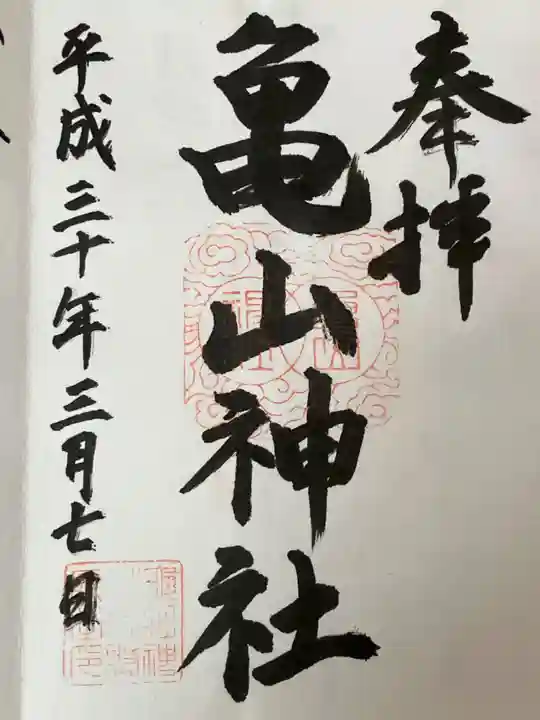 奉拝
亀山神社
平成三十年三月七日